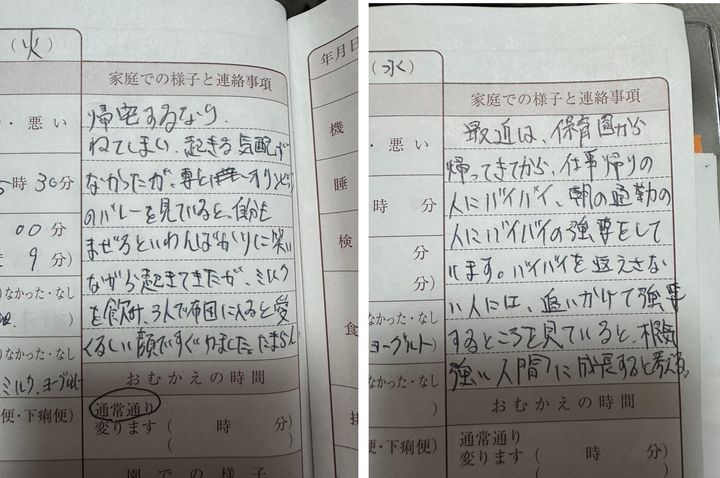 (火)
家庭での様子と連絡事項
・悪い
帰宅するなり、
ねてしまい、起きる気配が
時30分
なかったが、妻とオリンピック
のバレーを見ていると、自分も
00分
まぜろといわんばかりに笑い
9分)
ながら起きてきたが、ミルク
なかった・なし
を飲み、3人で布団に入ると愛
くるしい顔ですぐねました。たまらん
なかった・なし
ミルク、ヨーグルト
おむかえの時間
通常通り
便・下痢便)
変ります
( 時 分)
園での様子
年月日
機
睡
検
食
排
(水)
家庭での様子と連絡事項
・悪い
最近は、保育園から
帰ってきてから、仕事帰りの
時 分
人にバイバイ、朝の通勤の
人にバイバイの強要をして
分
います。バイバイを返えさな
分)
い人には、追いかけて強要
なかった・なし
するところを見ていると、根気
ヨーグルト)
強い人間に成長すると考える。
なかった・なし
おむかえの時間
)
通常通り
便・下痢便)
変ります
( 時 分)